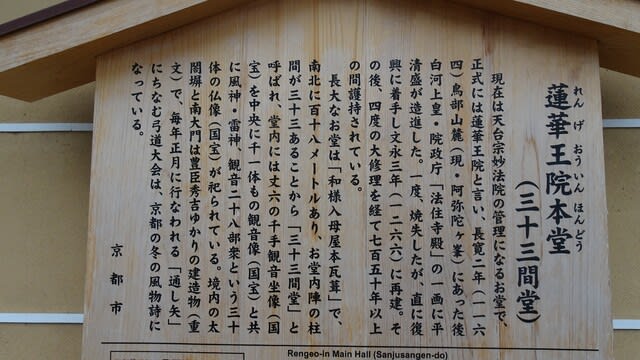 蓮華王院本堂
れんげおういんほんどう
(三十三間堂)
現在は天台宗妙法院の管理になるお堂で、
正式には蓮華王院と言い、長寛二年(一一六
四)鳥部山麓(現・阿弥陀ヶ峯)にあった後
白河上皇・院政庁「法住寺殿」の一画に平
清盛が造進した。一度、焼失したが、直に復
興に着手し文永三年(一二六六)に再建。そ
の後、四度の大修理を経て七百五十年以上
の間護持されている。
長大なお堂は「和様入母屋本瓦葺」で、
南北に百十八メートルあり、お堂内陣の柱
間が三十三あることから「三十三間堂」と
呼ばれ、堂内には丈六の千手観音坐像(国
宝)を中央に千一体もの観音像(国宝)と共
に風神・雷神、観音二十八部衆という三十
体の仏像(国宝)が祀られている。境内の太
閤塀と南大門は豊臣秀吉ゆかりの建造物(重
文)で、毎年正月に行なわれる「通し矢」
にちなむ弓道大会は、京都の冬の風物詩に
なっている。
京都市
Rengeo-in Main Hall (Sanjusangen-do)